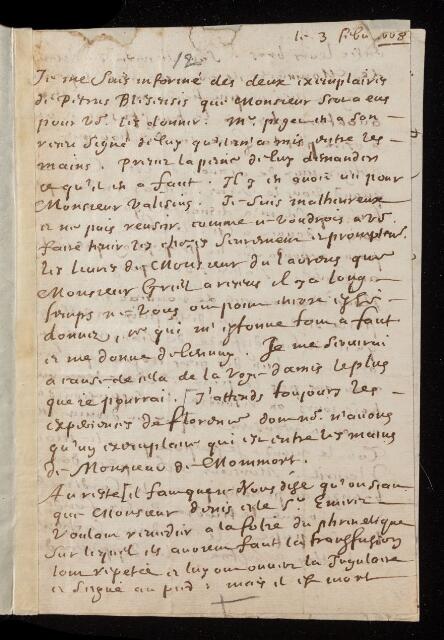 le 3 febu 1668
12
Je me suis informé des deux exemplaires
de Petrus Blesensis que Monsieur a eus
pour vo. les donner. Mr. en a son
receu signé de luy qu'il m'a mis entre les
mains. Prenez la peine de luy demander
ce qu'il en a faut. Il y en avoit un pour
Monsieur Je suis malheureux
et ne puis reussir comme je voudrois a vo.
faire tenir les choses seurement et promptemt.
les livres de Monsieur du Laurens que
Monsieur a receus il y a long
temps ne vous ont point encore esté
donnez, ce qui m'estonne tout a fait
et me donne de l'ennuy. Je me serviray
a cause de cela de la voye d'amis le plus
que je pourrai. J'attends toujours les
experiences de florence dont no. n'avons
qu'un exemplaire qui est entre les mains
de Monsieur de Mommort.
Au reste il faut que Vous dise qu'on
que Monsieur denis et le Sr. Emerez
voulant remedier a la folie du phrenetique
sur lequel ils avoient faut la transfusion
l'ont repetée et luy ont ouvert la Jugulaire
et signé au pied : mais il est mort